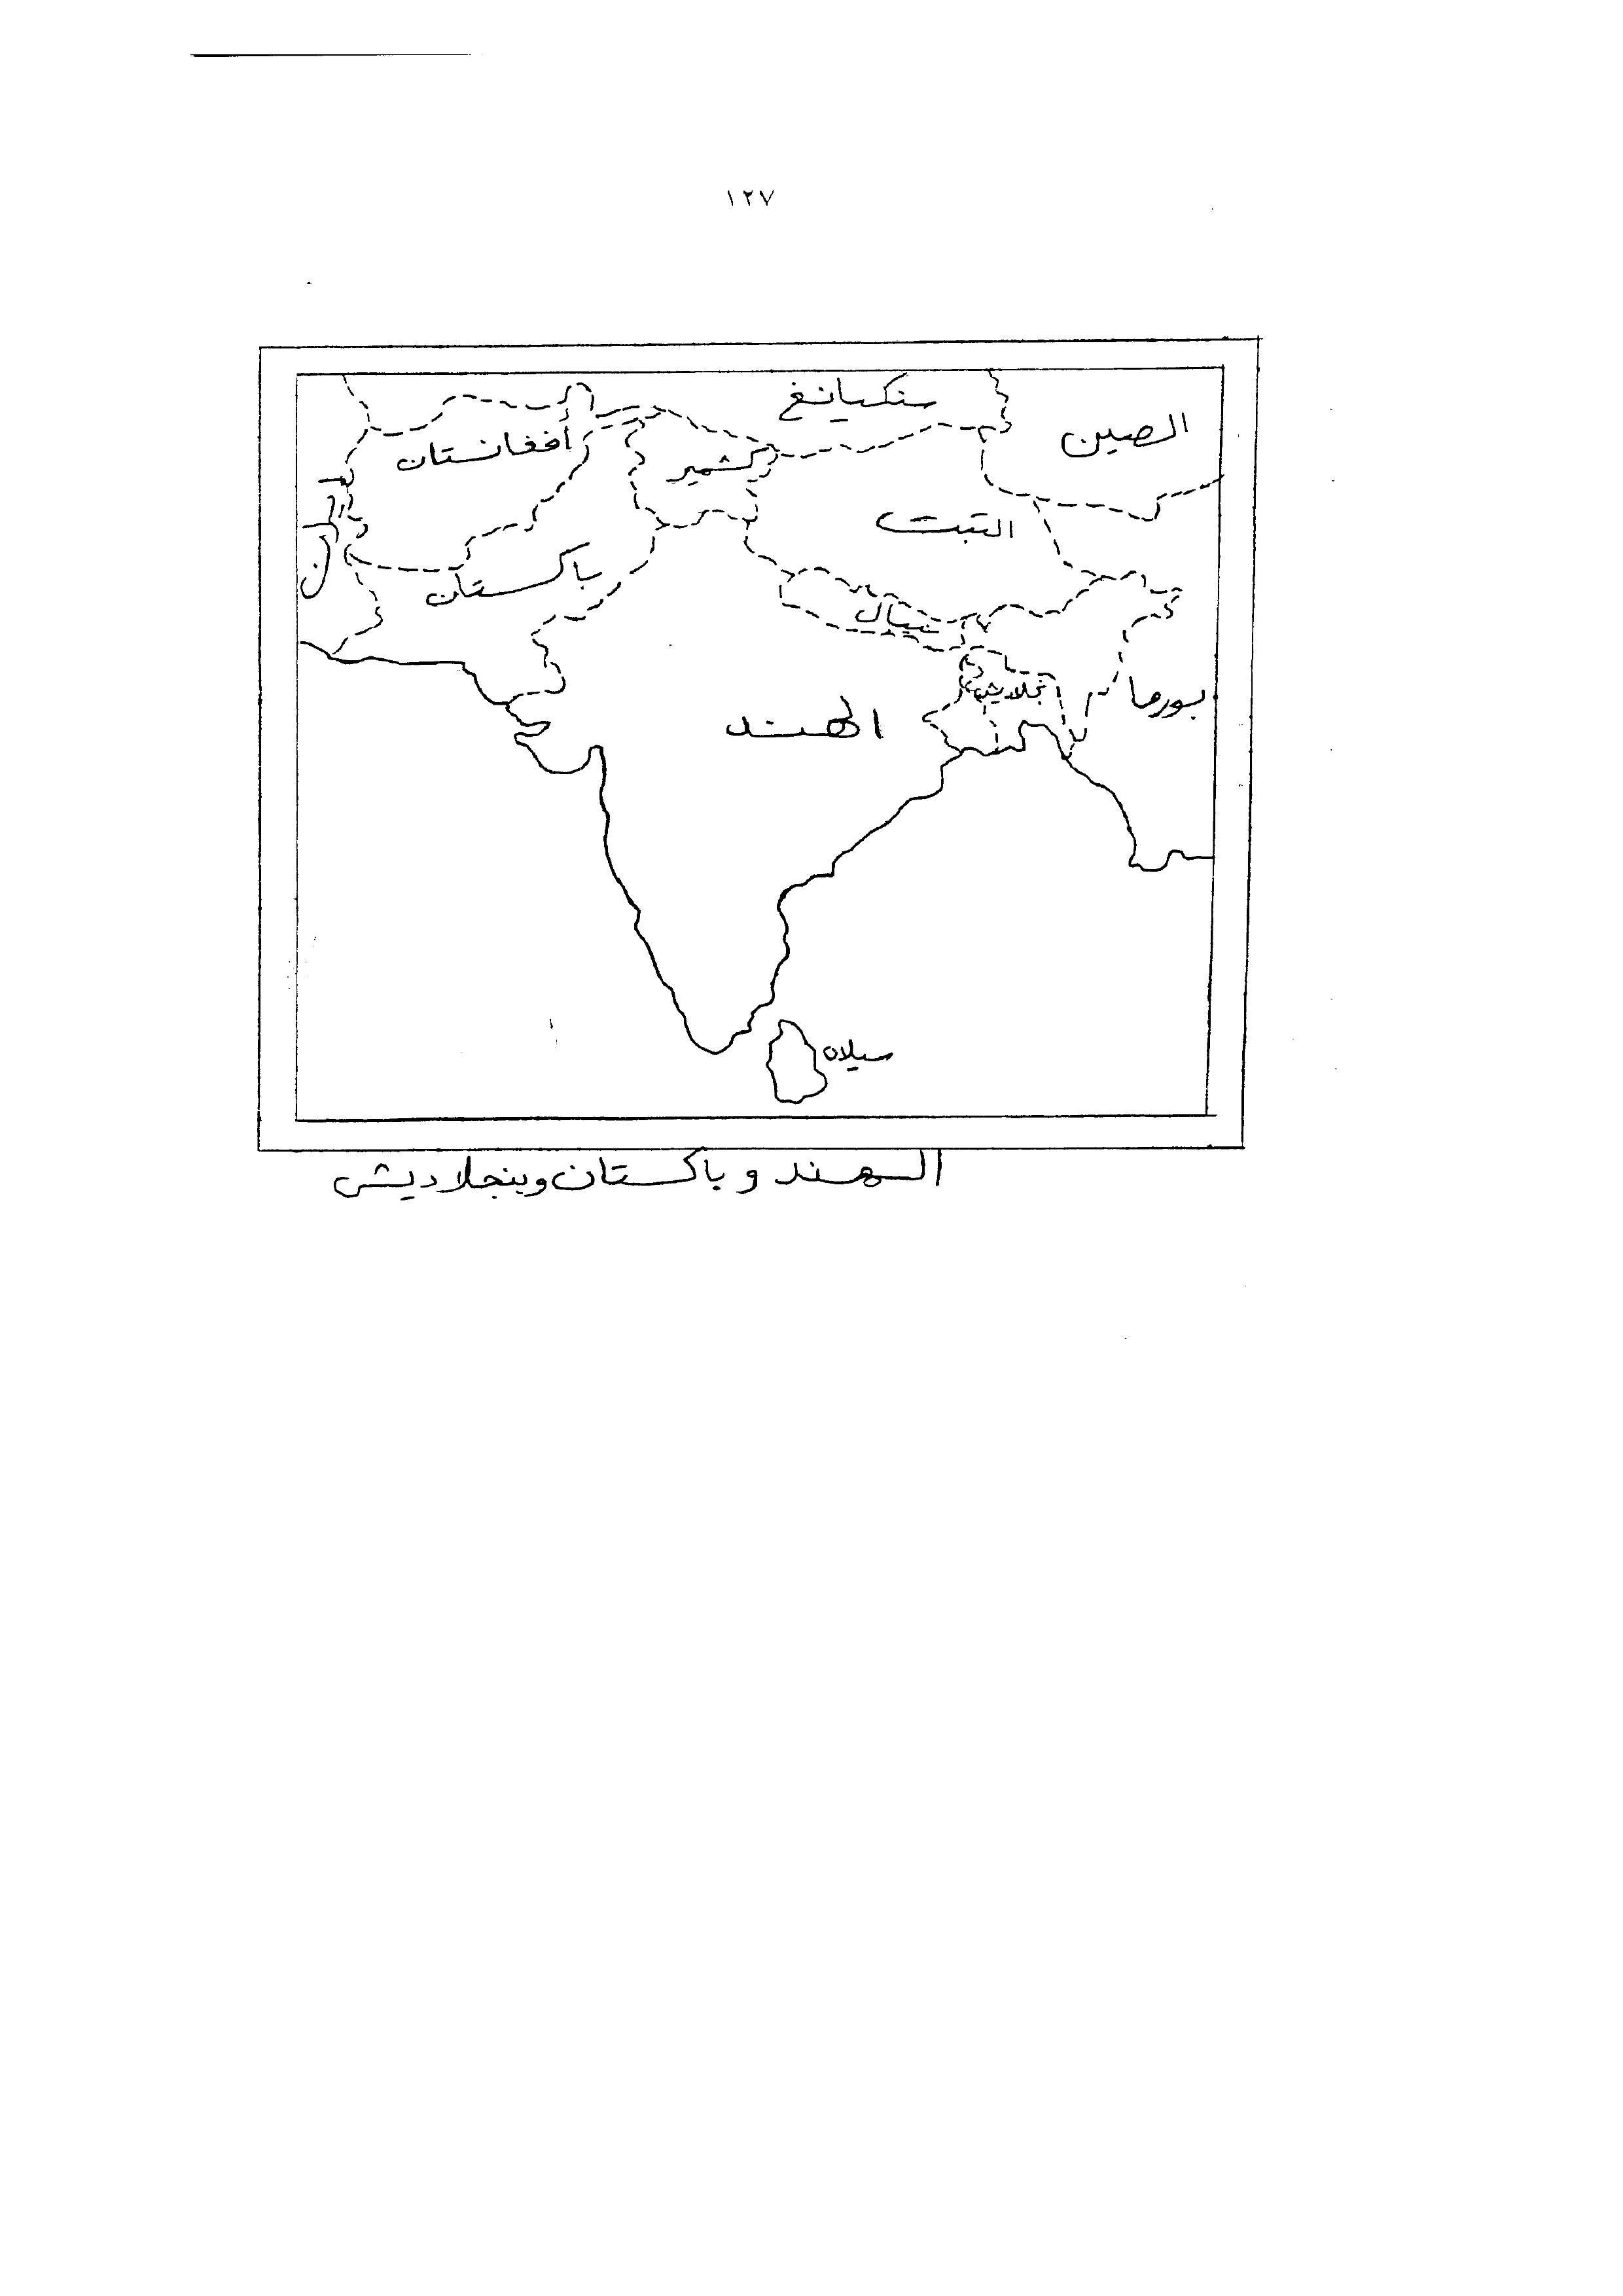 ١٢٧
سنكيانغ
الصين
أفغانستان
كشمير
التبت
إيران
باكستان
نيبال
بورما
الهند
سيلان
الهند وباكستان وبنجلاديش